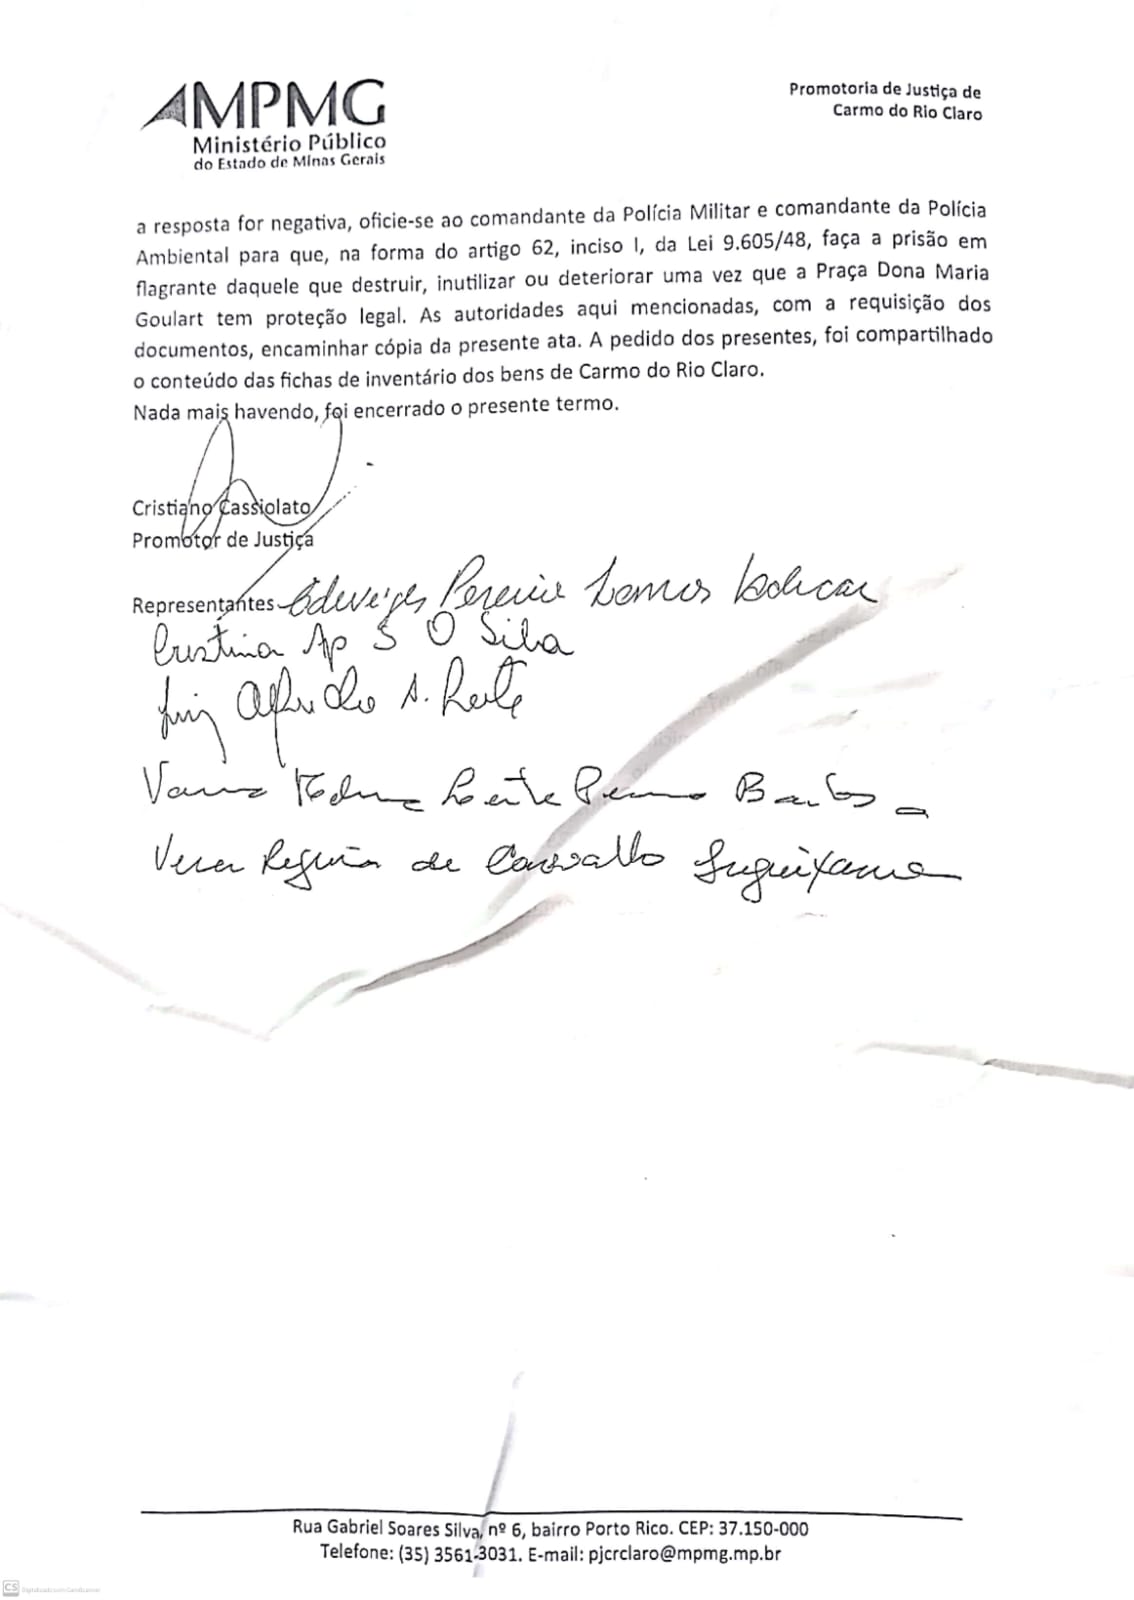 MPMG
Ministério Público
do Estado de Minas Gerais
Promotoria de Justiça de
Carmo do Rio Claro
a resposta for negativa, oficie-se ao comandante da Polícia Militar e comandante da Polícia
Ambiental para que, na forma do artigo 62, inciso I, da Lei 9.605/48, faça a prisão em
flagrante daquele que destruir, inutilizar ou deteriorar uma vez que a Praça Dona Maria
Goulart tem proteção legal. As autoridades aqui mencionadas, com a requisição dos
documentos, encaminhar cópia da presente ata. A pedido dos presentes, foi compartilhado
o conteúdo das fichas de inventário dos bens de Carmo do Rio Claro.
Nada mais havendo, foi encerrado o presente termo.
Cristiano Cassiolato
Promotor de Justiça
Representantes Pereira Lemos
Cristina Ap S O Silva
Luiz Alfredo A. Leite
Leite
Vera Regina de Carvalho
Rua Gabriel Soares Silva, nº 6, bairro Porto Rico. CEP: 37.150-000
Telefone: (35) 3561-3031. E-mail: pjcrclaro@mpmg.mp.br
CS Digitalizado com CamScanner